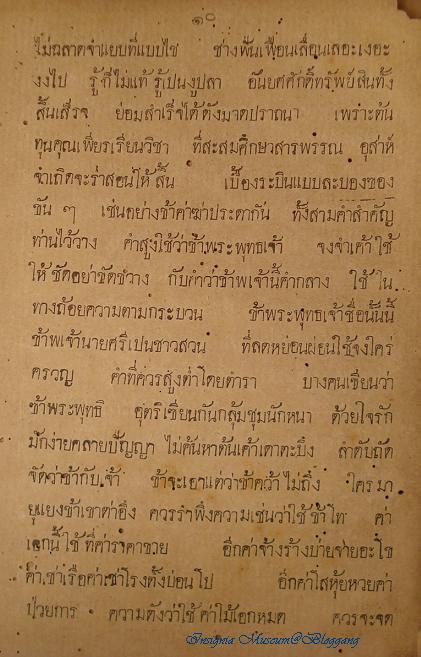 ๑๐
ไม่ฉลาดจำแยบที่แบบไช ช่างพั่นเฟือนเลื่อนเลอะเงอะ
งงไป รู้ก็ไม่แท้ รู้เปนงูปลา อันยศศักดิ์ทรัพย์สินทั้ง
สิ้นเสร็จ ย่อมสำเร็จได้ดังมาดปราถนา เพราะต้น
ทุนคุณเพียรเรียนวิชา ที่สะสมศึกษาสารพรรณ อุสาห์
จำเกิดจะร่ำสอนให้สิ้น เบื้องระบินแบบละบองของ
ขัน ๆ เช่นอย่างข้าค่าฆ่าประดากัน ทั้งสามคำสำคัญ
ท่านไว้วาง คำสูงใช้ว่าข้าพระพุทธเจ้า จงจำเค้าใช้
ให้ชัดอย่าขัดขวาง กับคำว่าข้าพเจ้านี้คำกลาง ใช้ใน
ทางถ้อยความตามกระบวน ข้าพระพุทธเจ้าชื่อนั้นนี้
ข้าพเจ้านายศรีเปนชาวสวน ที่ลดหย่อนผ่อนใช้จงใคร่
ครวญ คำที่ควรสูงต่ำโดยตำรา บางคนเขียนว่า
ข้าพระพุทธิ อุตริเขียนกันกลุ้มชุมนักหนา ด้วยใจรัก
มักง่ายคลายปัญญา ไม่ค้นหาต้นเค้าเดาตะบึง ลำดับถัด
จัดว่าข้ากับเจ้า ข้าจะเอาแต่ว่าข้าคว้าไม่ถึง ใครมา
ยุแยงข้าเขาด่าอึง ควรรำพึงความเช่นว่าใช้ข้าโท ค่า
เอกนี้ใช้ที่ค่าราคาขาย อีกค่าจ้างร้างบ่ายจ่ายอะโข
ค่าเช่าเรือค่าเช่าโรงตั้งบ่อนโป อีกค่าโสหุ้ยหวยค่า
ป่วยการ ความดังว่าใช้ค่าไม้เอกหมด ควรจะจด
Insignia Museum@Bloggang